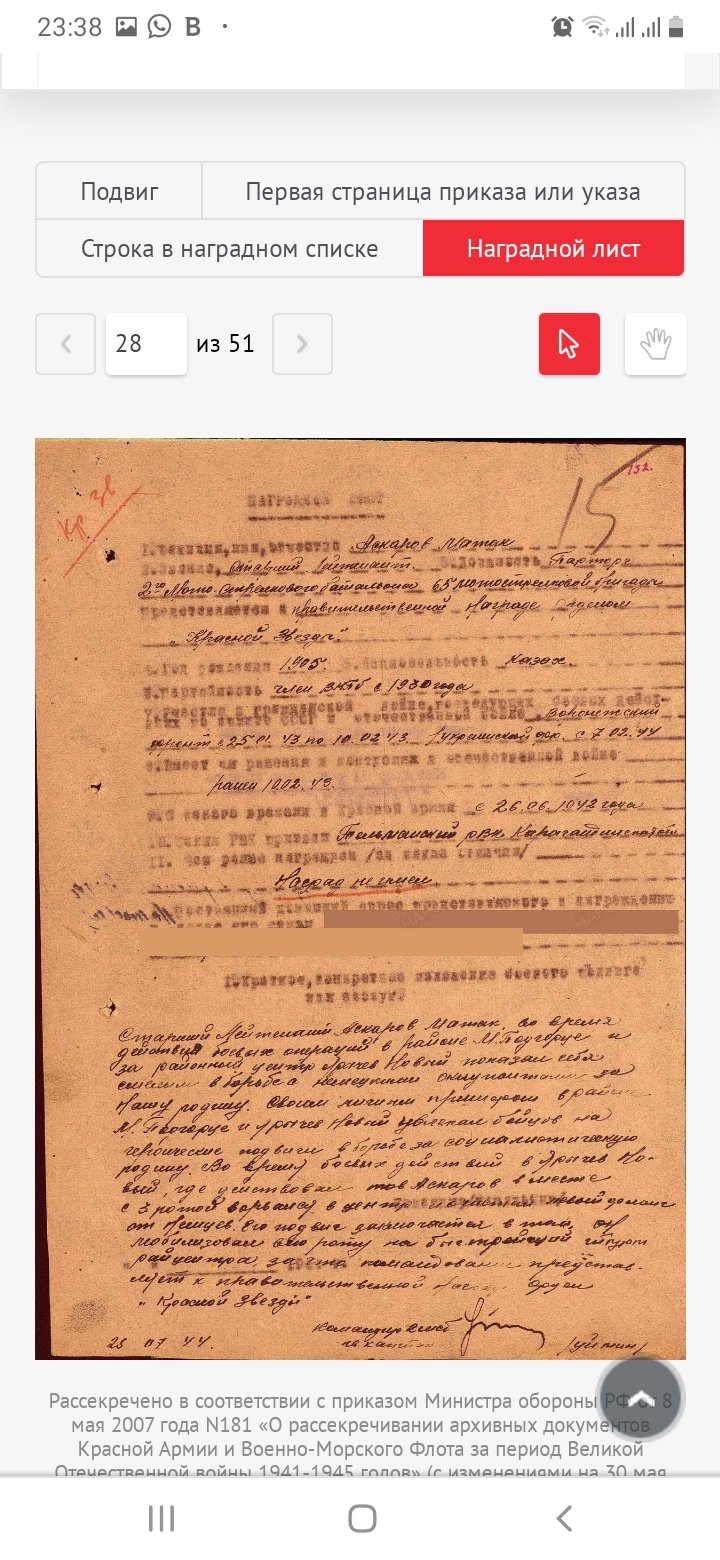 23:38
B
Подвиг
Первая страница приказа или указа
Строка в наградном списке
Наградной лист
28 из 51
152.
15
НАГРАДНОЙ ЛИСТ
Аскаров Матак
Старший Лейтенант. Парторг
2го Мото-Стрелкового батальона 65 мотострелковой бригады
представляется к правительственной награде орденом
„Красной Звезды"
4. Год рождения 1905. 5. Национальность казах.
6. Партийность член ВКПб с 1930 года
Воронежский
фронт с 25.01.43 по 10.02.43 Украинский фр. с 7.02.44
8. Имеет ли ранения и контузии в отечественной войне
ранен 10.02.43.
с 26.06.1942 года
10. Каким РВК призван Тельманский РВК Карагандинской
11. Чем ранее награжден /за какие отличия/
Наград не имеет
1. Краткое, конкретное изложение боевого подвига
или заслуг
Старший Лейтенант Аскаров Матак, во время
действия боевых операций в районе М. Подгорце и
за районный центр Ярычев Новый показал себя
смелым в борьбе с немецкими оккупантами за
нашу родину. Своим личным примером в районе
М. Подгорце и Ярычев Новый увлекал бойцов на
героические подвиги в борьбе за социалистическую
родину. Во время боевых действий в Ярычев Но-
вый, где действовал тов Аскаров вместе
с 3 ротой ворвались в центр
от немцев. Его подвиг заключается в том, он
мобилизовал всю роту на быстрейший штурм
райцентра, за что командование представ-
ляет к правительственной Награде Орден
„Красной Звезды"
Командир
25 07 44.
Рассекречено в соответствии с приказом Министра обороны РФ от 8
мая 2007 года N181 «О рассекречивании архивных документов
Красной Армии и Военно-Морского Флота за период Великой
Отечественной войны 1941-1945 годов» (с изменениями на 30 мая